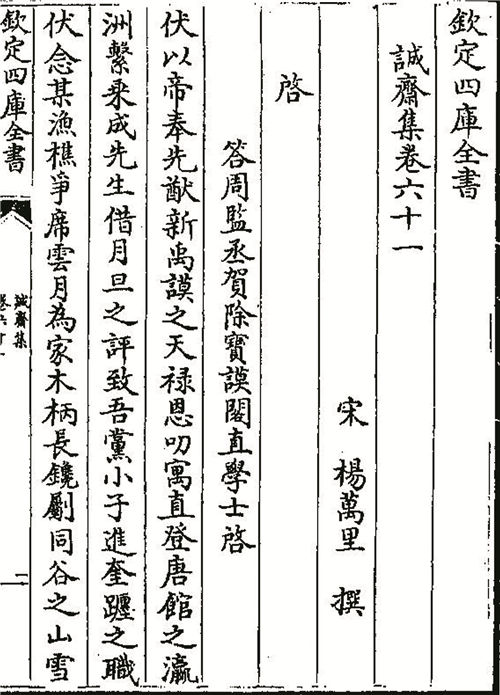 欽定四庫全書
誠齋集卷六十一
宋 楊萬里 撰
啓
答周監丞賀除寶謨閣直學士啓
伏以帝奉先猷新禹謨之天禄恩叨寓直登唐館之瀛
洲繫乘成先生借月旦之評致吾黨小子進奎躔之職
伏念某漁樵爭席雲月為家木柄長鑱劚同谷之山雪
欽定四庫全書
誠齋集
卷六十一
二